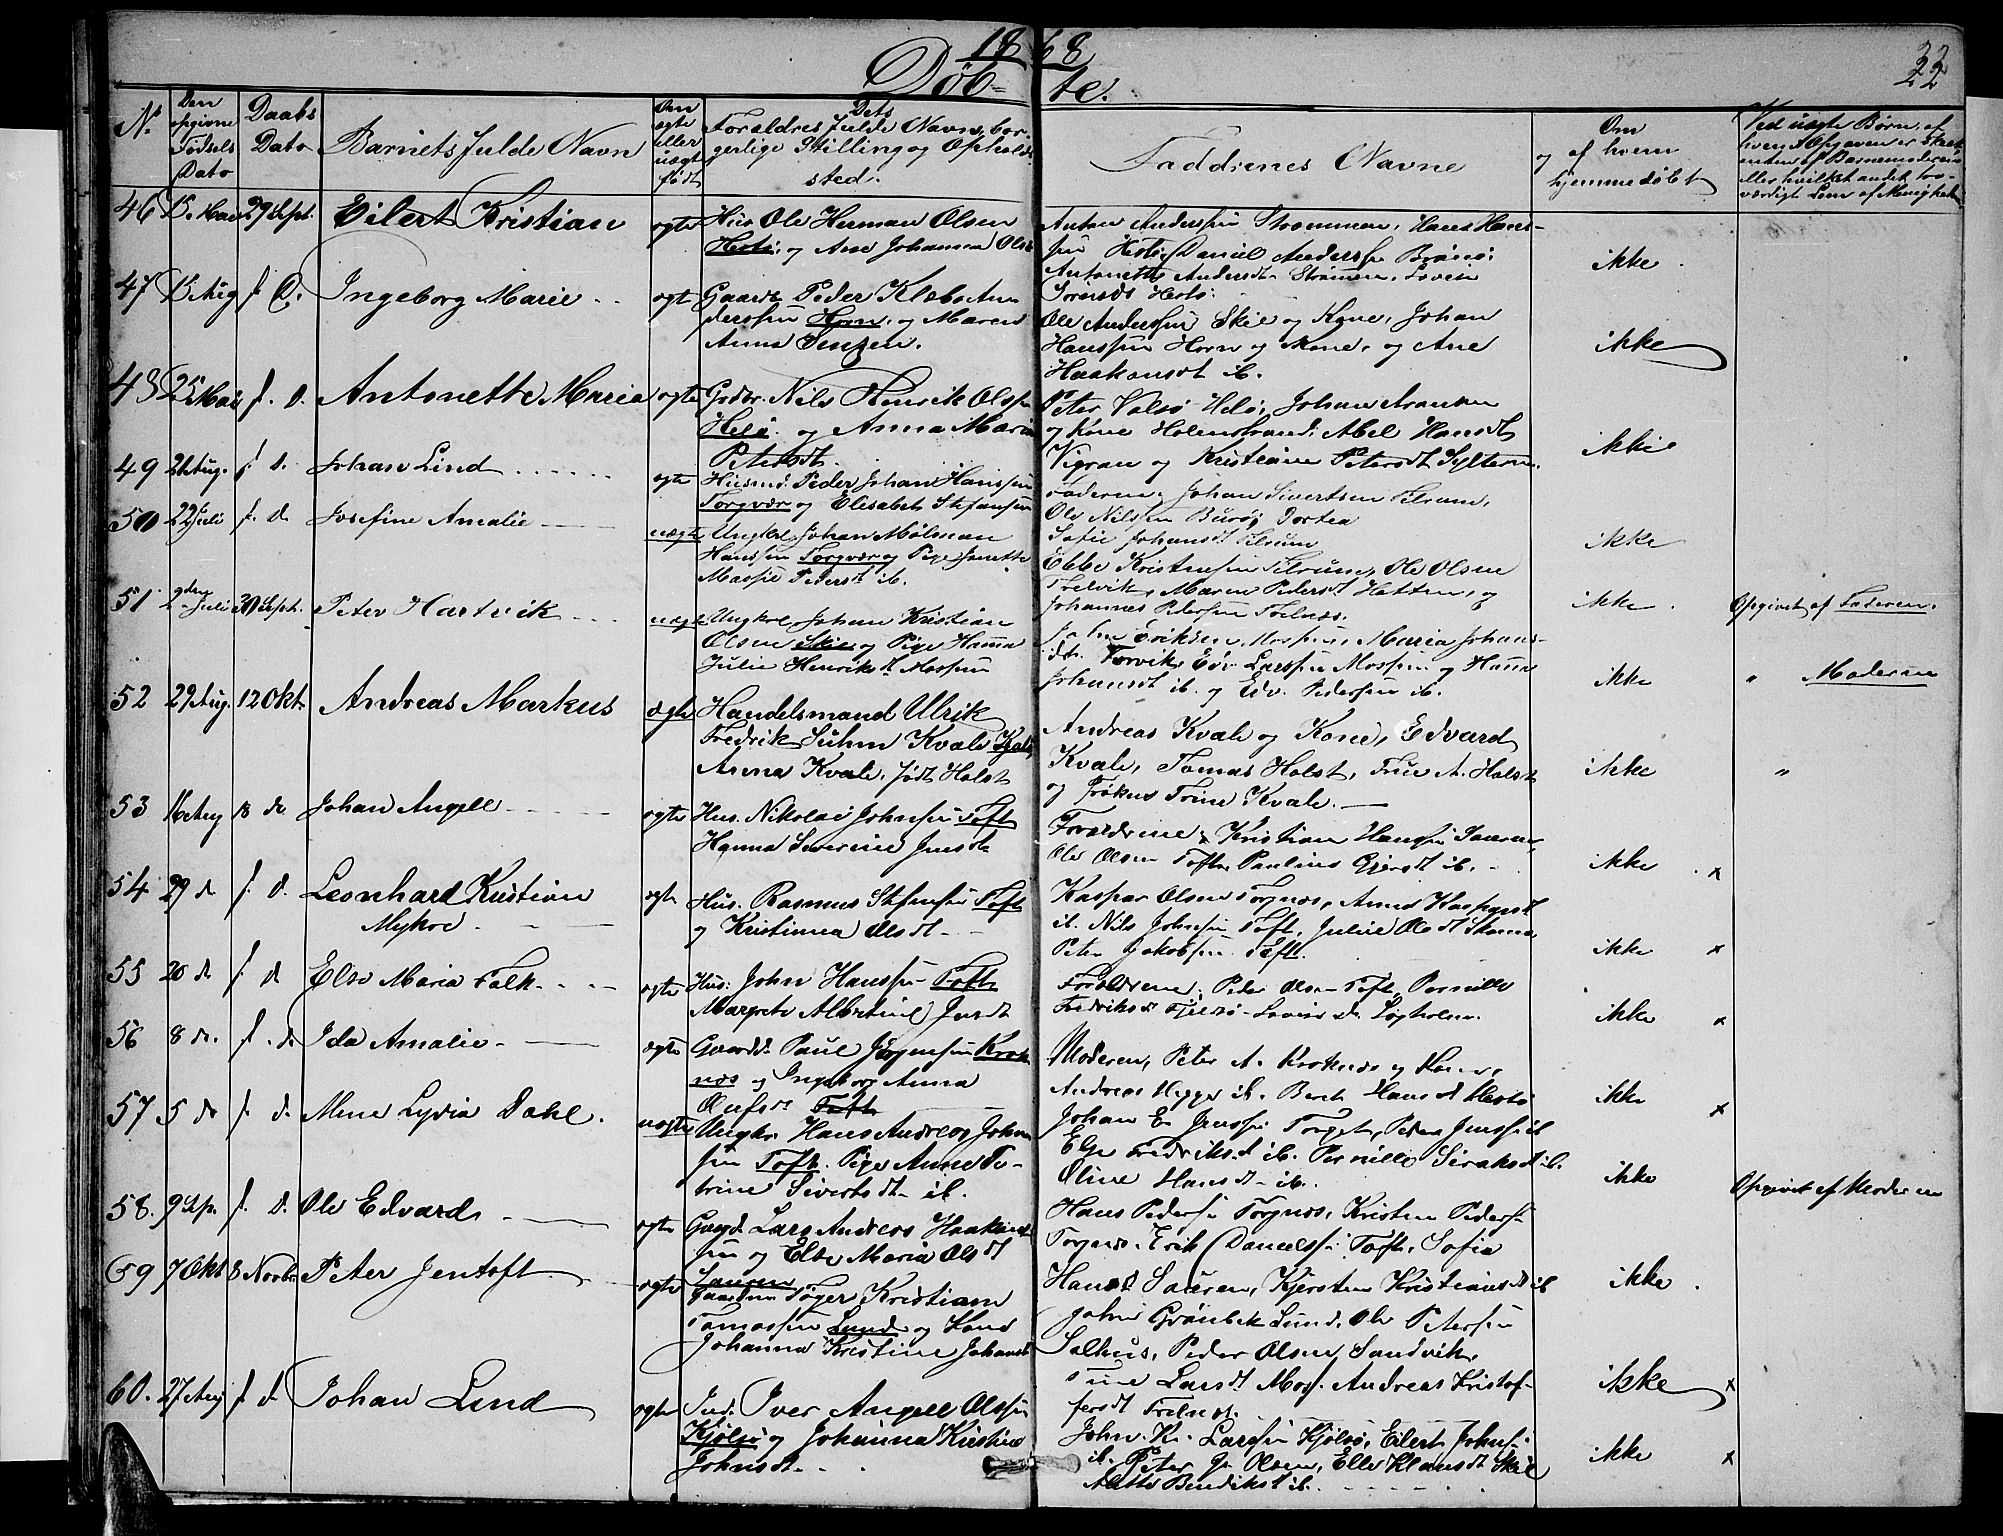 1868
Döbte.
22
N.
Den opgivne Fødsels Dato
Daabs Dato
Barnets fulde Navn
Om ægte eller uægte født
Dets Forældres fulde Navn, borgerlige Stilling og Opholdssted.
Faddrenes Navne
Om og af hvem hjemmedøbt
Ved uægte Børn, af hvem Opgaven er skeet enten af Barnemoderen eller hvilket andet troværdigt Lem af Menigheden
46 15 Mai 29 Sept. Eilert Kristian
ægte
Hus. Ole Herman Olsen
Hestø, og Ane Johanna Ols
Anton Anderssen Strømmen, Hans Hans-
sen Hestø, Daniel Anderssen Brønø,
Antonette Andersdt. Strømen, Lovise
Sørensdt Hestø.
ikke
47 15 Aug f. D. Ingeborg Marie
ægte
Gaardr. Peder Klæbo An
derssen Horn, og Maren
Anna Jenssen.
Ole Anderssen Skie og Kone, Johan
Hanssen Horn og Kone, og Ane
Haakonsdt ib.
ikke
48 25 Mai f. D. Antonette Maria
ægte
Grdbr. Nils Henrik Olssen
Helø. og Anna Maria
Petersdt.
Peter Valsø Helø, Johan
og Kone Holmstrand, Abel Hansdt
Vigran og Kristiane Petersdt Sylteren
ikke
49 21 Aug. f. D. Johan Lind
ægte
Husmd. Peder Johan Hanssen
Torgvær og Elisabet Stefansen
Faderen, Johan Sivertsen Tilrum,
Ole Nilsen Burøy Dortea
Sofie Johansdt Tilrum
ikke
50 22 Juli f. D. Josefine Amalie
uægte
Ungkl. Johan Molman
Hanssen Torgvær og Pige Janette
Massie Pedersdt ib.
Ebbe Kristensen Tilrum, Ole Olsen
Trælvik, Maren Pedersdt Hatten, og
Johannes Pedersen Trælnæs.
ikke
Opgivet af Faderen.
51 2den Juli 30 Sept. Peter Hartvik
uægte
Ungkl. Johan Kristian
Olsen Skie og Pige Hanna
Julie Henriksdt. Mossem
John Eriksen Mossem, Maria Johans-
dt. Torvik, Edv. Larssen Mossem og Hanna
Johansdt ib. og Edv. Pederssen ib.
ikke
" Moderen
52 29 Aug. 12 Okt. Andreas Markus
ægte
Handelsmand Ulrik
Fredrik Suhm Kvale
Anna Kvale, født Holst
Andreas Kvale og Kone, Edvard
Kvale, Tomas Holst, Frue A. Holst
og Frøken Trine Kvale.
ikke
"
53 16 Aug 18 do Johan Angell
ægte
Hus. Nikolai Johnsen Toft
Hanna Severine Jensdt
Forældrene, Kristian Hanssen Sauren,
Ole Olsen Toft, Pauline Gjersdt ib.
ikke x
54 29 d f. D. Leonhard Kristian
Mykoe
ægte
Hus. Rasmus Stefensen Toft
og Kristianna Olsdt.
Kaspar Olsen Torgnæs, Anne Kasparsdt
ib. Nils Johnsen Toft, Juline Olsdt
Peter Jakobsen Toft.
ikke x
55 20 d f. D Else Maria Falk
ægte
Hus. John Hanssen Toft
Margrete Albertine Jensdt
Forældrene, Peder Olsen Toft, Pernille
Fredriksdt Fjelsø Lovise do
ikke x
56 8 do. f. d. Ida Amalie
ægte
Gaardb. Paul Jørgensen Krok
næs og Ingeborg Anna
Olufsdt Toft
Moderen, Peter A. Kroknæs og Kone,
Andreas Hegge ib. Berit Hansdt Hestø
ikke x
57 5 do f. d. Mine Lydia Dahl.
uægte
Ungkr. Hans Andreas Johan
sen Toft. Pige Anne Pe-
trine Sivertsdt ib.
Johan E. Jenssen Torget, Peder Jenssen ib
Else Fredriksdt ib. Pernille Siraksdt ib.
Oline Hansdt ib.
ikke
Opgivet af Moderen
58. 9 Sep. f. D. Ole Edvard
ægte
Gaard. Lars Andreas Haakons
sen og Else Maria Olsdt
Sauren
Hans Pedersen Torgnæs, Kristen Pedersen
Torgnæs, Erik Danielssen Toft, Sofia
Hansdt Sauren, Kjersten Kristiansdt ib
ikke
59 7 Okt 8 Novbr Peter Jentoft
ægte
Gaardm. Jøger Kristian
Tomassen Lund og Kone
Johanna Kristine Johansdt
John Grønbek Lund, Ole Petersen
Salhus, Peder Olsen Sandvik,
Larsdt Mos. Andreas Kristof-
fersdt Trælnæs.
ikke x
60. 27 Aug f. d. Johan Lind
ægte
Ind. Iver Angell Olssen
Kjølsø og Johanna Kirstine
Johnsdt.
John K. Larssen Kjølsø, Eilert Johnsen
ib. Peter J. Olsen, Elle Klausdt Skie
Mette Bendiksdt ib.
ikke x